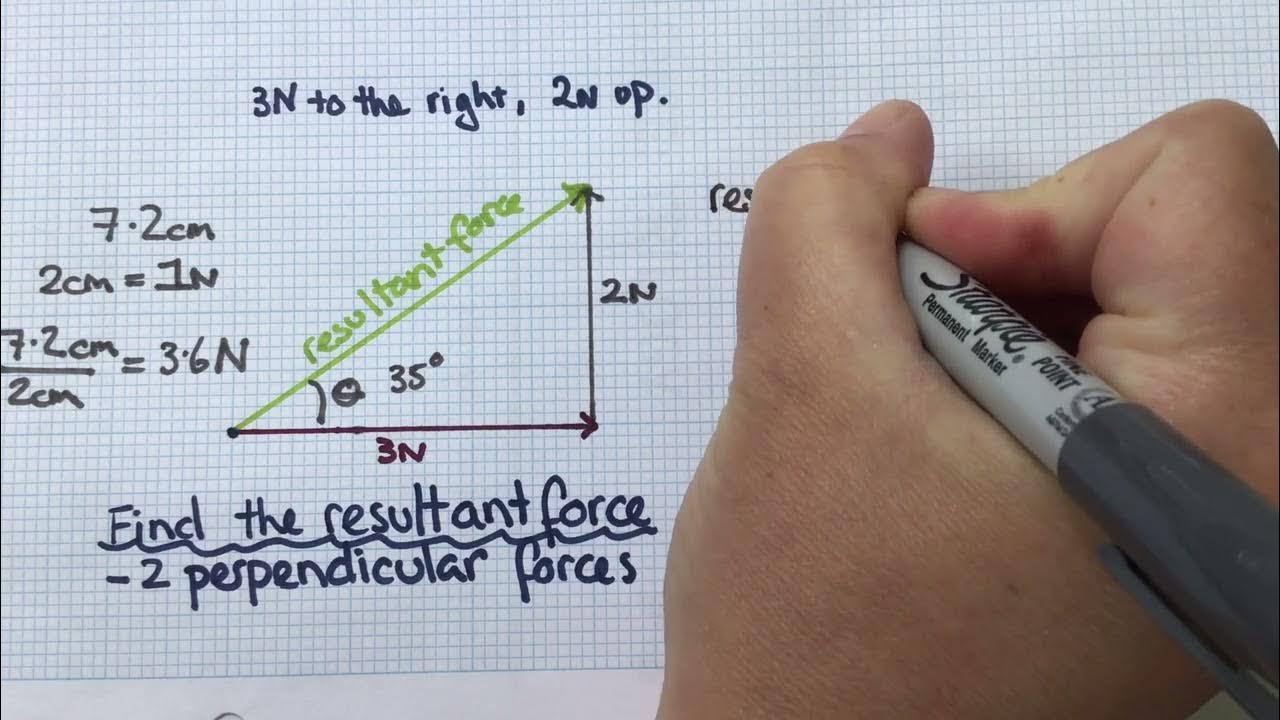 3N to the right, 2N up.
7.2cm
2cm = 1N
7.2cm
2cm
= 3.6N
resultant force
θ 35°
2N
3N
res
Sharpie.
Permanent Marker
FINE POINT
Find the resultant force
- 2 perpendicular forces